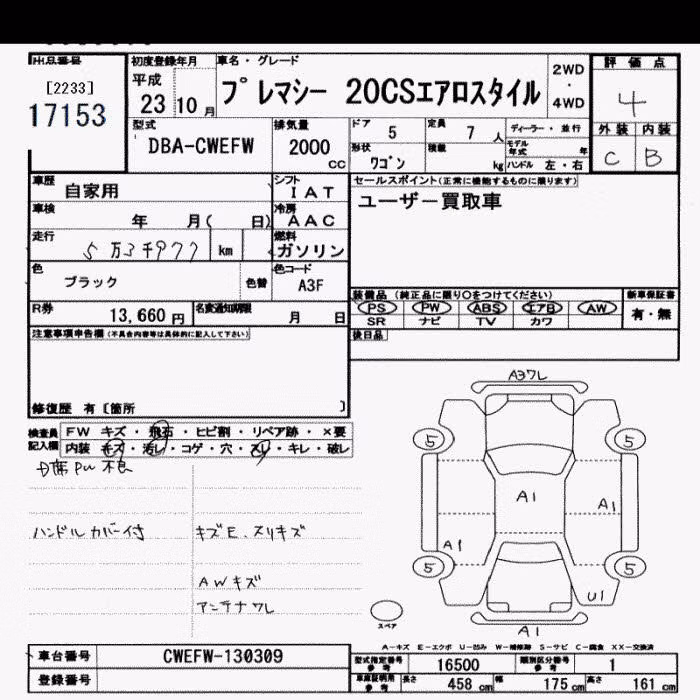 出品番号
[2233]
17153
初度登録年月
平成
23 10 月
車名・グレード
プレマシー 20CSエアロスタイル
2WD
・
4WD
評価点
4
外装 内装
C B
型式
DBA-CWEFW
排気量
2000
cc
ドア
5
定員
7 人
ディーラー・並行
形状
ワゴン
積載
kg
モデル年式 年
ハンドル 左・右
車歴
自家用
シフト
IAT
車検
年 月( 日)
冷房
AAC
走行
5万3千977 km
燃料
ガソリン
色
ブラック
色替
色コード
A3F
R券
13,660 円
名変通知期限
月 日
セールスポイント(正常に機能するものに限ります)
ユーザー買取車
装備品 (純正品に限り○をつけてください)
新車保証書
PS PW ABS エアB AW
SR ナビ TV カワ
有・無
後日品
注意事項申告欄(不具合内容等は具体的に記入して下さい)
修復歴 有〔箇所 〕
検査員記入欄
FW キズ・飛石・ヒビ割・リペア跡・×要
内装 キズ・汚レ・コゲ・穴・スレ・キレ・破レ
D席PW 不良
ハンドルカバー付
キズE.スリキズ
AWキズ
アンテナワレ
A3ワレ
5
5
A1
A1
A1
5
5
U1
A1
スペア
A－キズ E－エクボ U－凹み W－補修跡 S－サビ C－腐食 XX－交換済
車台番号
CWEFW-130309
登録番号
型式指定番号
参考
16500
類別区分番号
参考
1
車庫証明用
参考
長さ 458 cm
幅 175 cm
高さ 161 cm